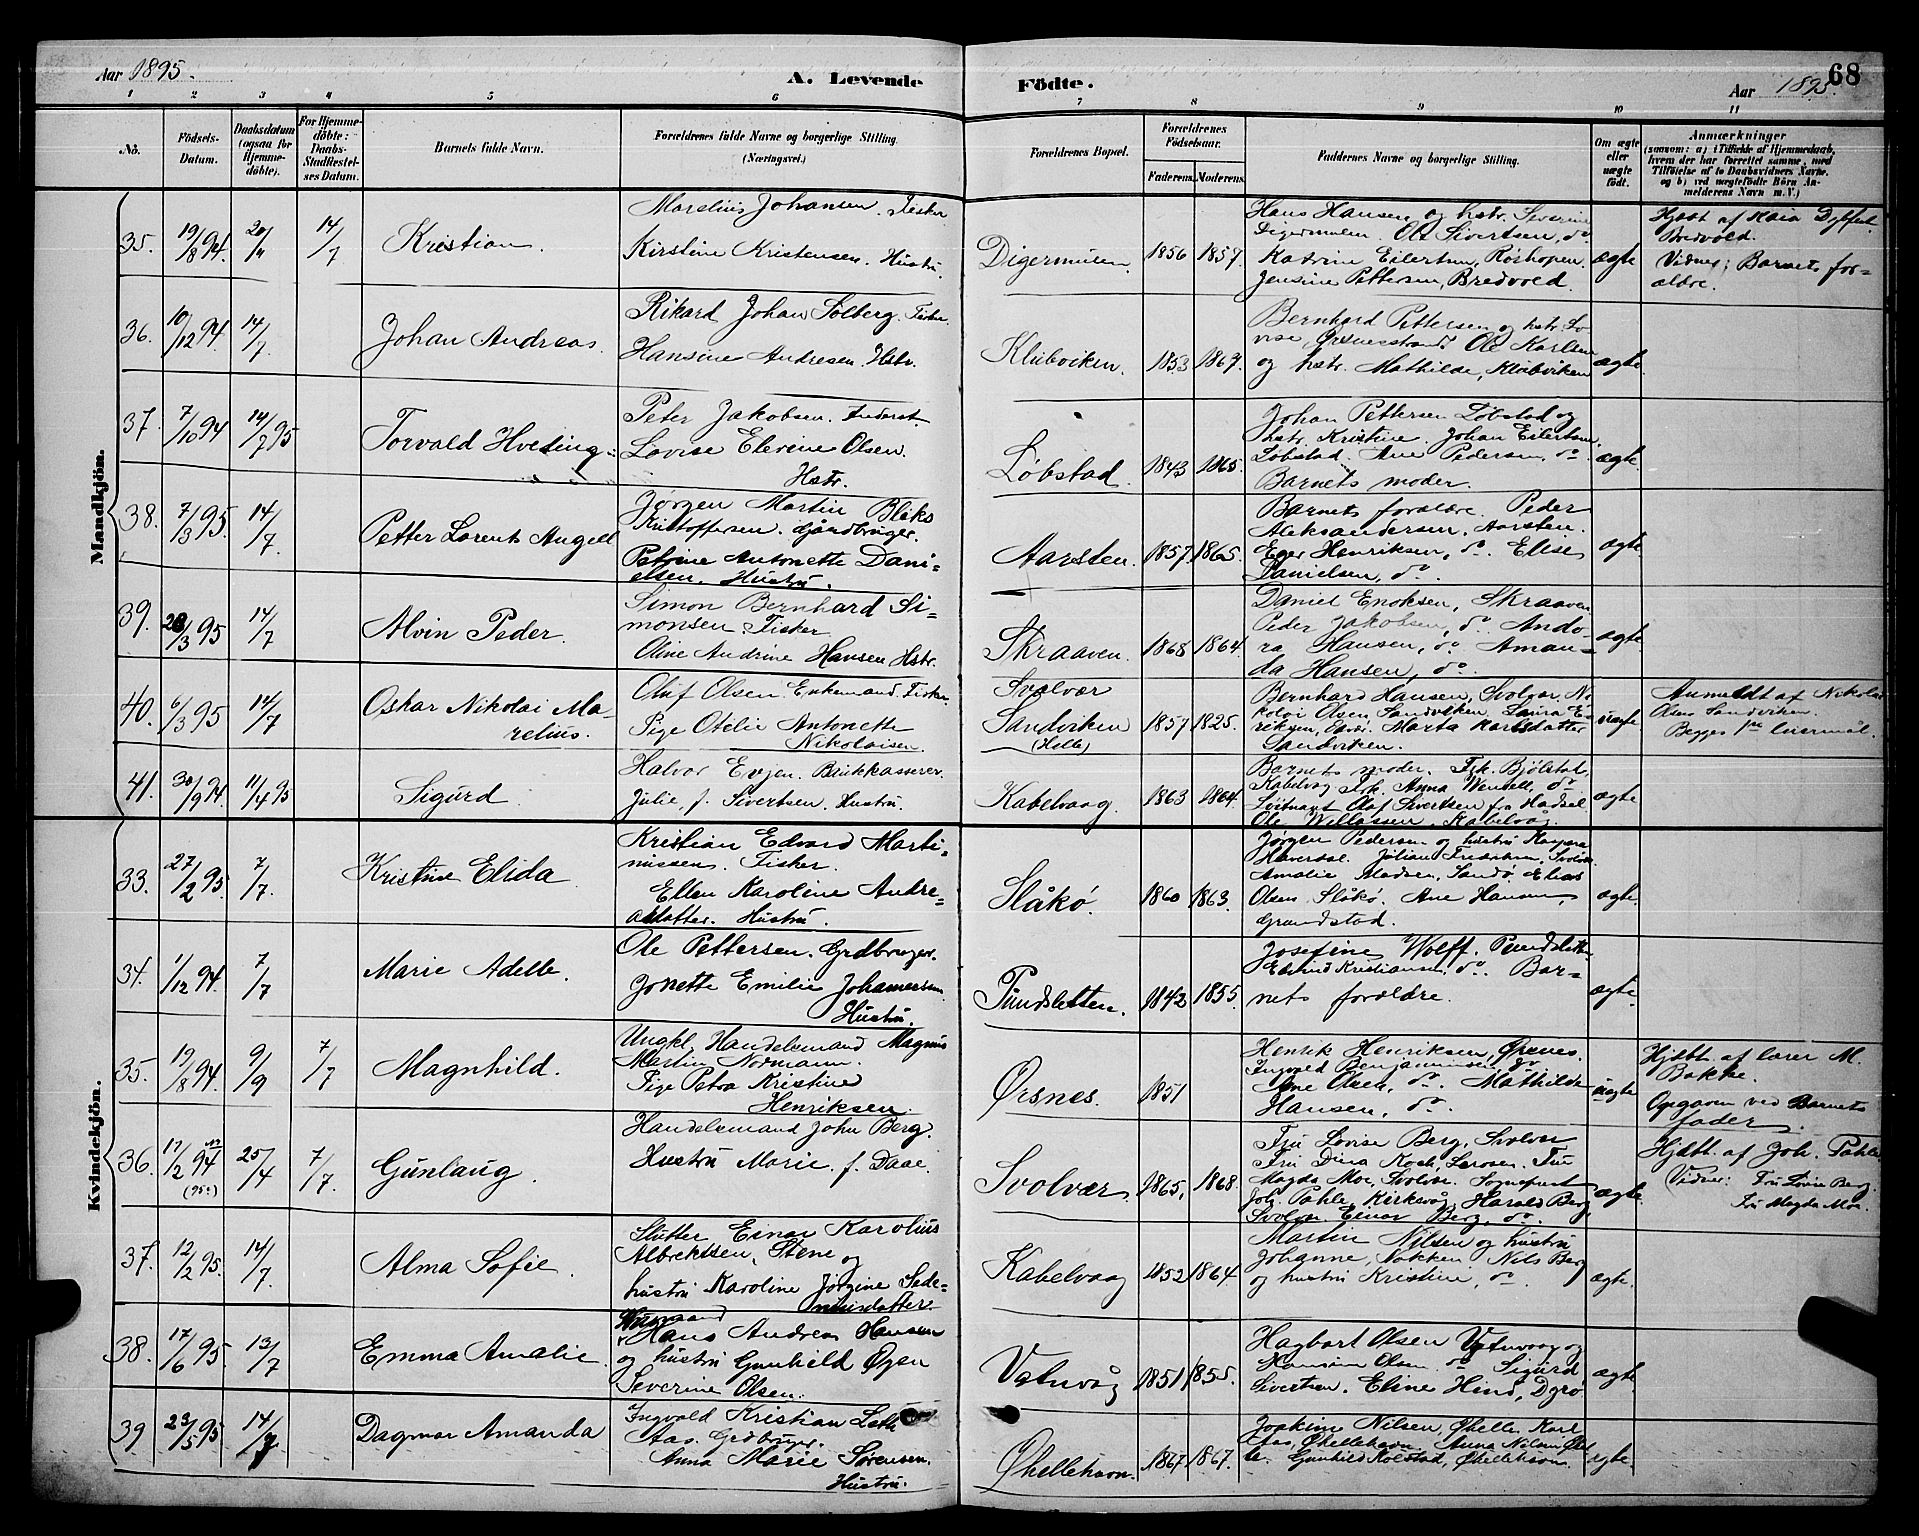 Aar 1895.
A. Levende
Födte.
Aar 1895.
68
1 2 3 4 5 6 7 8 9 10 11
No.
Födsels-Datum.
Daabsdatum (ogsaa for Hjemme-döbte).
For Hjemme-döbte: Daabs-Stadfæstel-ses Datum.
Barnets fulde Navn.
Forældrenes fulde Navne og borgerlige Stilling. (Næringsvei.)
Forældrenes Bopæl.
Forældrenes Födselsaar.
Faderens. Moderens.
Faddernes Navne og borgerlige Stilling.
Om ægte eller uægte födt.
Anmærkninger
(saasom: a) i Tilfælde af Hjemmedaab,
hvem der har forrettet samme, med
Tilföielse af to Daabsvidners Navne,
og b) ved uægtefödte Börn An-
melderens Navn m. V.)
Mandkjön.
35. 19/8 94. 14/7 Kristian.
Marelius Johansen. Fisker
Kirstine Kristensen. Hustru.
Digermulen. 1856 1857.
Hans Hansen og hstr. Severine
Digermulen. Ole Sivertsen, do.
Katrine Eilertsen, Rörhopen.
Jensine Pettersen, Bredvold.
ægte
Hjdbt af Maia
Bredvold.
Vidner: Barnets for-
ældre.
36. 10/12 94. 14/7. Johan Andreas.
Rikard Johan Solberg. Fisker.
Hansine Andresen. Hstr.
Klubviken. 1853 1867.
Bernhard Pettersen og hstr. Lo-
vise, Ørsnesstrand. Ole Karlsen
og hstr. Mathilde, Klubviken
ægte.
37. 7/10 94 14/7 95 Torvald Hveding.
Peter Jakobsen. Inderst.
Lovise Elevine Olsen.
Hstr.
Løbstad. 1843 1865.
Johan Pettersen Løbstad og
hstr. Kristine. Johan Eilertsen,
Løbstad. Ane Pedersen, do
Barnets moder.
ægte.
38. 7/3 95. 14/7 Petter Lorents Angell
Jørgen Martin Bläks
Kristoffersen. Gårdbruger.
Petrine Antonette Dani-
elsen. Hustru.
Aarsten. 1857. 1865.
Barnets forældre. Peder
Aleksandersen, Aarsten.
Henriksen, do. Elise
Danielsen, do.
ægte
39. 28/3 95 14/7 Alvin Peder.
Simon Bernhard Si-
monsen. Fisker
Oline Andrine Hansen Hstr.
Skraaven. 1868 1864.
Daniel Enoksen, Skraaven
Peder Jakobsen, do. Ando-
ra Hansen, do. Aman-
da Hansen, do.
ægte
40. 6/3 95 14/7 Oskar Nikolai Ma-
relius.
Oluf Olsen. Enkemand. Fisker
Pige Otelie Antonette
Nikolaisen.
Svolvær
Sandviken
(Helle)
1857 1825.
Bernhard Hansen, Svolvær, Ni-
kolai Olsen, Sandviken, Laura E-
riksen, Marta Karlsdatter
Sandviken.
uægte
Anmeldt af Nikolai
Olsen Sandviken.
Begges 1ste leiermål.
41. 30/9 94 11/4 95 Sigurd.
Halvor Evjen. Bankkasserer.
Julie, f. Sivertsen, Hustru.
Kabelvaag. 1863 1864.
Barnets moder. Frk. Bjølstad,
Kabelvåg. Frk. Anna Wendell, do
Løitnant Olaf Sivertsen fra Hadsel
Ole Willassen, Kabelvåg.
ægte
Kvindekjön.
33. 27/2 95. 7/7 Kristine Elida.
Kristian Edvard Marti-
nussen. Fisker.
Ellen Karoline Andre-
asdatter. Hustru.
Slåkø. 1860 1863.
Jørgen Pedersen og hustru
Amalie Madsen, Sandø. Elias
Olsen Slåkø. Ane Hansen,
Grundstad.
ægte.
34. 1/12 94. 7/7 Marie Adelle.
Ole Pettersen. Grdbruger.
Jonette Emilie Johannessen
Hustru.
Pundsletten. 1842 1855.
Josefine Wolff. Pundsletten
Edvind Kristiansen, do. Bar-
nets forældre.
ægte
35. 19/8 94. 9/9 7/7 Magnhild.
Ungkl. Handelsmand Magnus
Martin Normann.
Pige Petra Kristine
Henriksen.
Ørsnes. 1851
Henrik Henriksen, Ørsnes.
Ingvald Benjaminsen, do
Ane Olsen, do. Mathilde
Hansen, do.
uægte
Hjdbt. af lærer M.
Bakke.
Opgaven ved Barnets
fader.
36. 17/2 94 (95?) 25/4 7/7. Gunlaug.
Handelsmand John Berg.
Hustru Marie. f. Daae.
Svolvær. 1865. 1868.
Fru Lovise Berg, Svolvær
Fru Dina Koch, Fru
Magda Moe, Svolvær. Sogneprest
Joh. Pahle, Kirkevåg, Harald Berg
Svolvær. Einar Berg, do.
ægte
Hjdbt. af Joh. Pahle
Vidner: Fru Lovise Berg
Fru Magda Moe.
37. 12/2 95. 14/7. Alma Sofie.
Slutter Einar Karolius
Albrektsen, Stene og
hustru Karoline Jørgine Sede-
niusdatter.
Kabelvaag 1852 1864
Martin Nilsen og hustru
Johanne, Nils Berg
og hustru Kristine, do
ægte.
38. 17/6 95. 13/7 Emma Amalie.
Husmand
Hans Andreas Hansen
og hustru Gunhild
Severine Olsen.
Vatnvåg 1851 1855.
Hagbart Olsen Vatnvaag og
Hansine Olsen do Sigurd
Sivertsen. Eline Hind,
ægte.
39 23/5 95 14/7 Dagmar Amanda
Ingvald Kristian
Aas. Grdbruger.
Anna Marie Sørensen.
Hustru.
Øhellehavn. 1867 1867.
Joakim Nilsen, Øhelle. Karl
Aas, Øhellehavn. Anna Nilsen, Øhel-
le. Gunhild Kolstad, Øhellehavn.
ægte